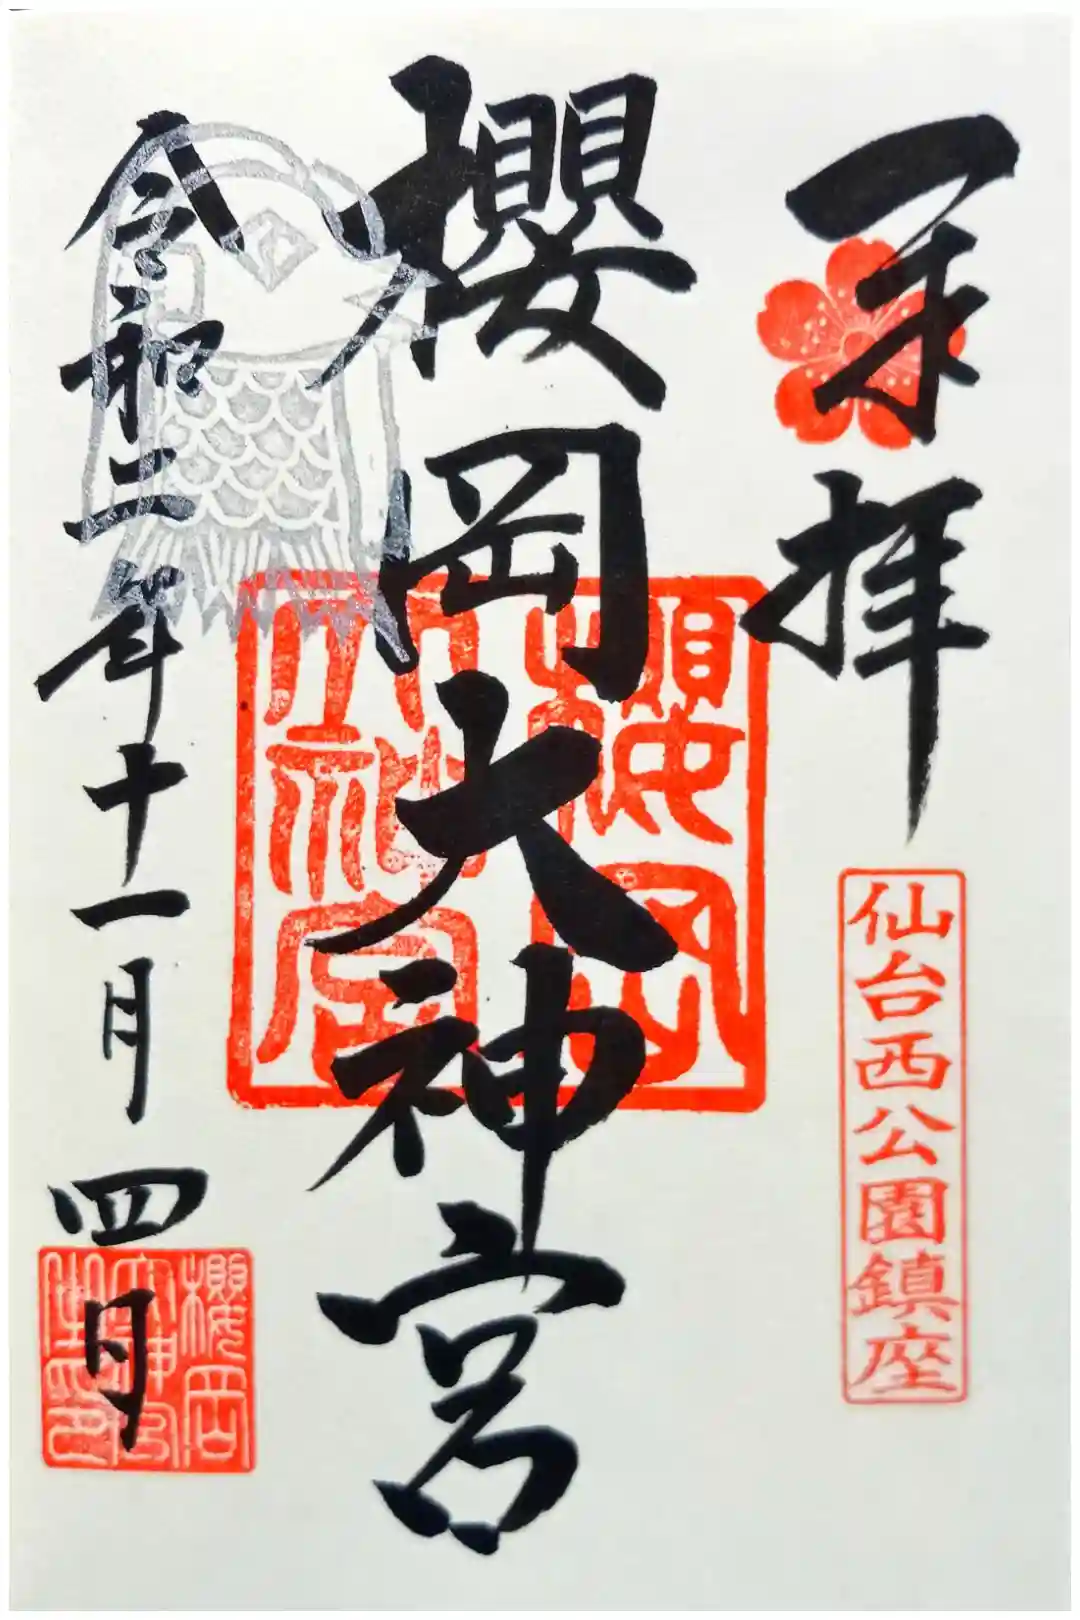 奉拝
仙台西公園鎮座
櫻岡大神宮
櫻岡
大神宮
令和二年十一月四日
櫻岡
大神宮